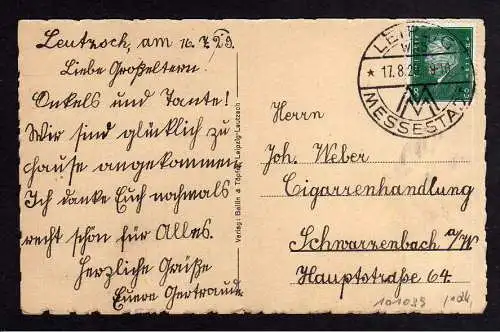 Leutzsch, am 16. 7. 29.
Liebe Großeltern
Onkels und Tante!
Wir sind glücklich zu
hause angekommen.
Ich danke Euch nochmals
recht schön für Alles.
Herzliche Grüße
Euere Gertraude
Verlag: Ballin & Töpfer, Leipzig-Leutzsch
LEIPZIG
17.8.29
MESSESTADT
Herrn
Joh. Weber
Cigarrenhandlung
Schwarzenbach a/W
Hauptstraße 64.
101089